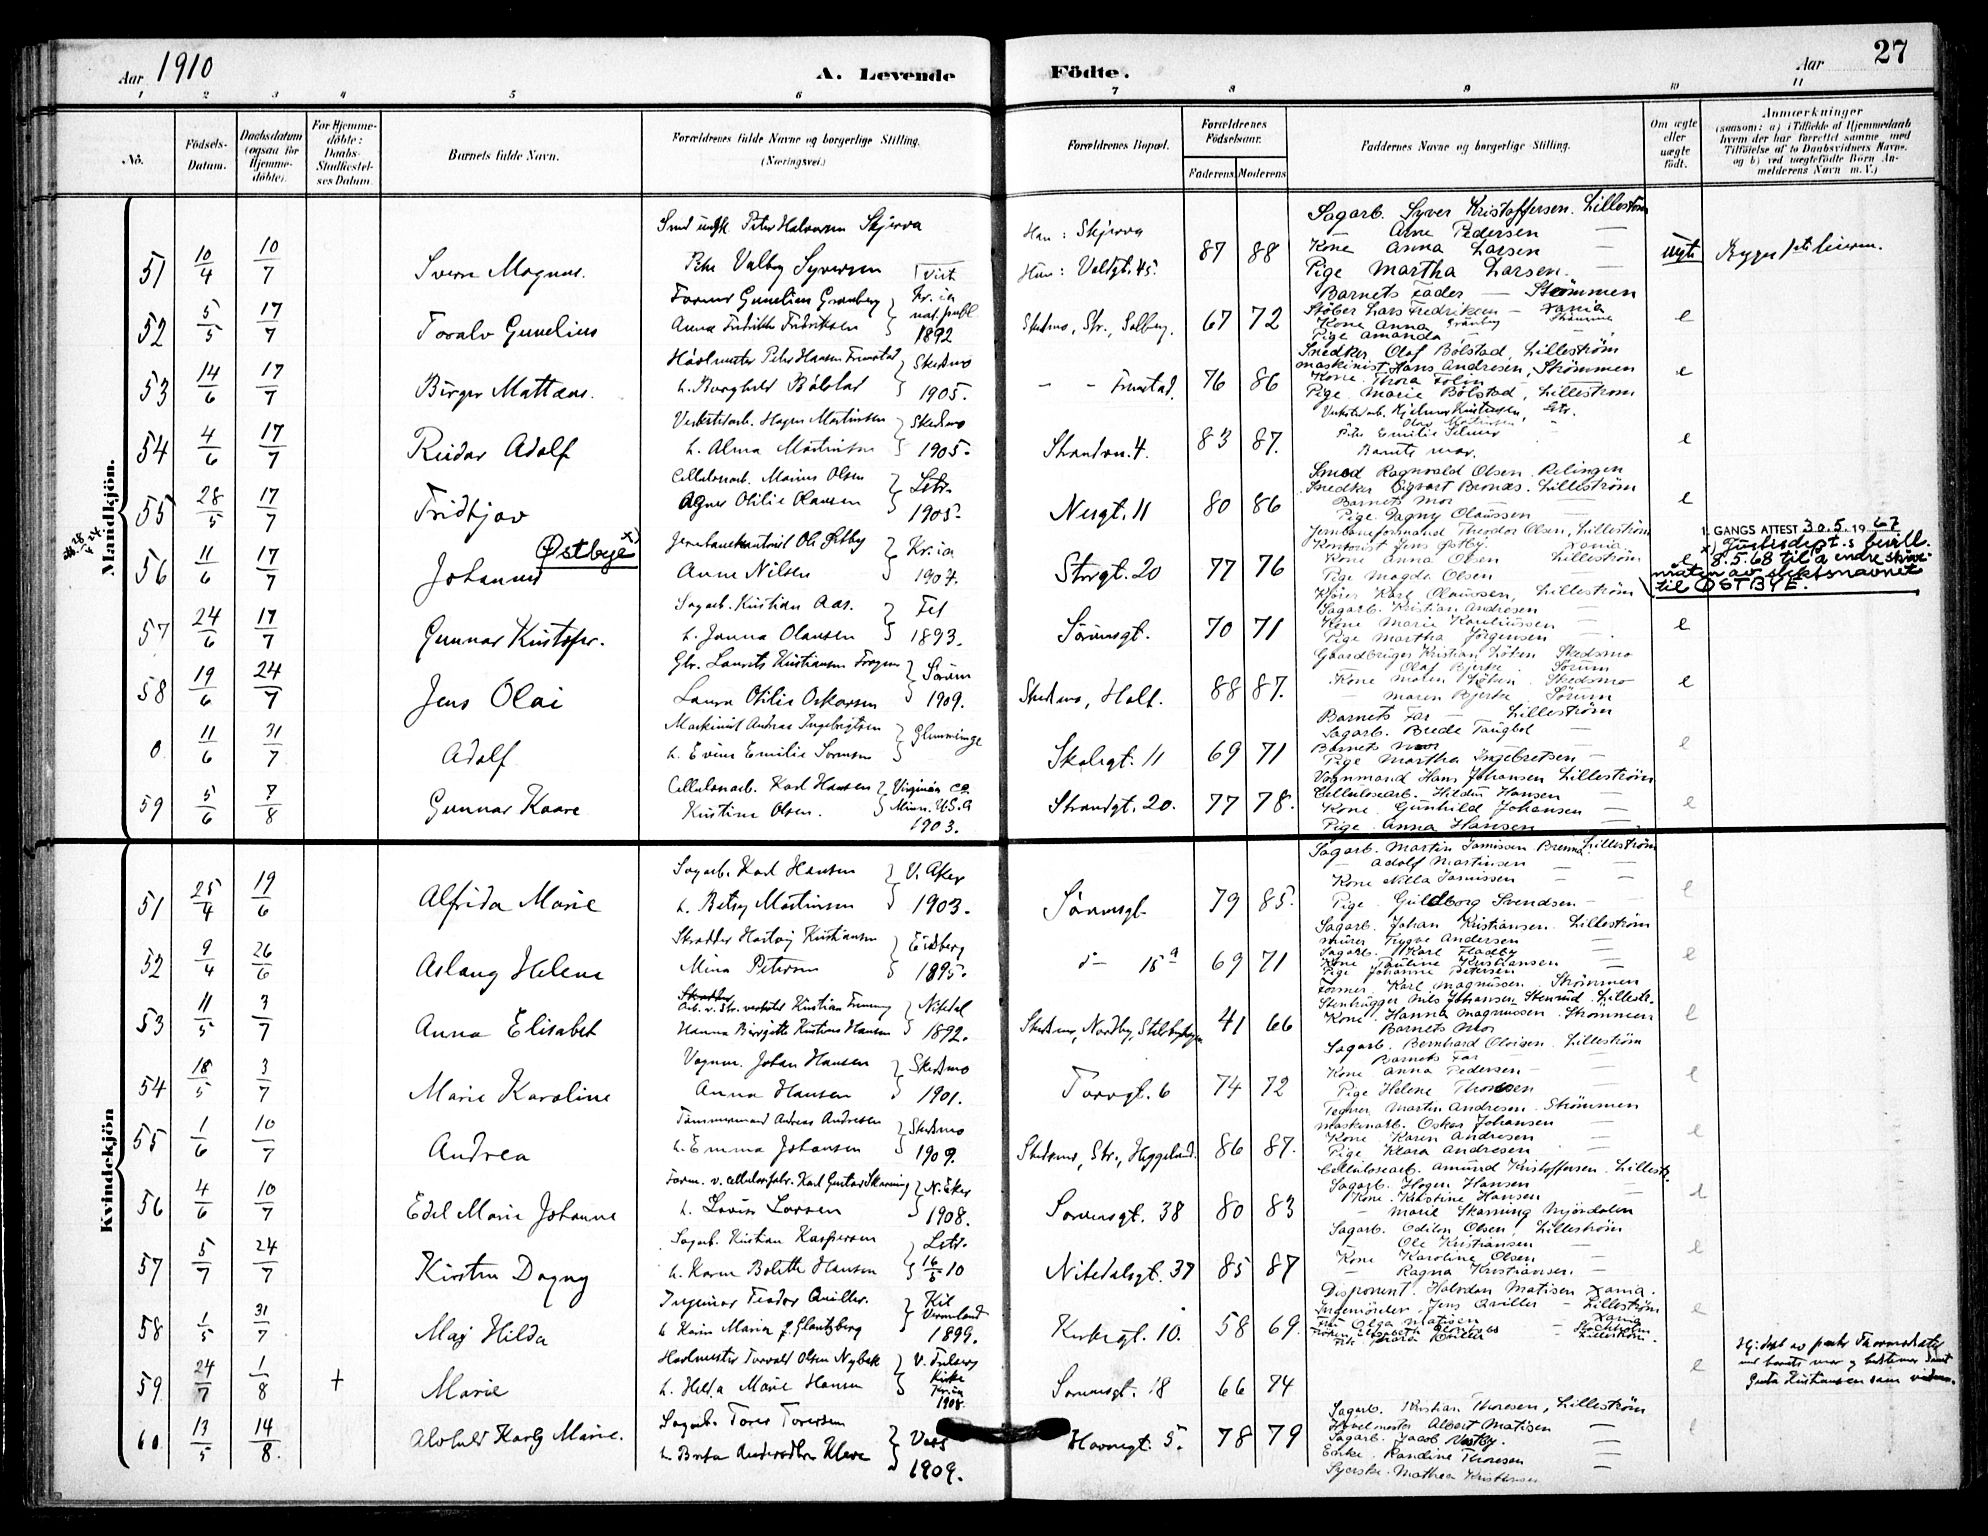 Aar 1910
A. Levende Födte.
Aar 27
1 2 3 4 5 6 7 8 9 10 11
No. Födsels-Datum. Daabsdatum (ogsaa for Hjemme-döbte). For Hjemme-döbte: Daabs-Stadfæstel-ses Datum. Barnets fulde Navn. Forældrenes fulde Navne og borgerlige Stilling. (Næringsvei.) Forældrenes Bopæl. Forældrenes Födselsaar. Faderens Moderens Faddernes Navne og borgerlige Stilling. Om ægte eller uægte födt. Anmærkninger (saasom: a) i Tilfælde af Hjemmedaab hvem der har forrettet samme, med Tilföielse af to Daabsvidners Navne, og b) ved uægtefödte Börn Anmelderens Navn m. V.)
Mandkjön.
Sagarb. Syver Kristoffersen. Lilleström
Arne Pedersen
Han: Skjerva
51 10/4 10/7 Sverre Magnus. Pike Valbog Syversen Hun: Voldgt. 45. 87 88 Kone Anna Larsen uegte
Pige Martha Larsen
Barnets Fader — Strömmen
52 5/5 17/7 Toralv Gunelius Former Gunelius Granberg Anna Fridrikke Fridriksen 1892 Skedsmo, Str., Solberg. 67 72 Støber Lars Fredriksen - Xania e
Kone Anna Granberg Strömmen
Pige Amanda
53 14/6 17/7 Birger Mattæus. Høvlmester Peter Hansen Frustad h. Borghild Bölstad Skedsmo 1905. - - Frustad. 76 86 Snedker Olaf Bölstad, Lilleström e
Maskinist Hans Andresen, Strömmen
Kone Thora Folin
Pige Marie Bölstad, Lilleström
54 4/6 17/7 Reidar Adolf Verkstedarb. Hagen Martinsen h. Alma Martinsen Skedsmo 1905. Stranden. 4. 83 87. e
Pike Emilie
Barnets mor.
55 28/5 17/7 Fridtjov Cellulosearb. Marius Olsen Agnes Otilie Olausen Lstr. 1905. Nesgt. 11 80 86 Smed Ragnvald Olsen. Relingen e
Snedker Sigvart Bronäs. Lilleström
Barnets Mor
Pige Dagny Olaussen
56 11/6 17/7 Johannes Østbye x) Jernbanekontorist Ole Østby Anne Nilsen Kr.ia 1907. Storgt. 20 77 76 Jernbaneformand Theodor Olsen, Lilleström e
Kontorist Jens Østby. Xania
Kone Anna Olsen Lilleström
Pige Magda Olsen
1. GANGS ATTEST 30.5.1967
x) Justisdept.s bevill.
8.5.68 til å endre skrive-
måten av slektsnavnet
til ØSTBYE.
57 24/6 17/7 Gunnar Kristofer. Sagarb. Kristian Aas. h. Janna Olausen Fet 1893. Sörumsgt. 70 71 Kjører Karl Olaussen, Lilleström e
Sagarb. Kristian Andresen
Kone Marie Karelinssen
Pige Martha Jörgensen
58 19/6 24/7 Jens Olai Gbr. Laurits Kristiansen Laura Otilie Oskarsen Sörum 1909. Skedsmo, Holt. 88 87. Gaardbruger Kristian Løken Skedsmo e
Olaf Bjerke. Sörum
Kone Maren Løken. Skedsmo
Maren Bjerke Sörum
0 11/6 31/7 Adolf Maskinist Andreas Ingebrigtsen h. Evine Emilie Sörensen Skolegt. 11 69 71 Barnets Far — Lilleström e
Sagarb. Brede Tangbol
Barnets Mor
Pige Martha Ingebretsen
59 5/6 7/8 Gunnar Kaare Cellulosearb. Karl Hansen Kristine Olsen. Virginia Co. Minn. U.S.A 1903. Strandgt. 20. 77 78. Vognmand Hans Johansen Lilleström e
Cellulosearb. Hilda Hansen
Kone Gunhild Johansen
Pige Anna Hansen
Kvindekjön
51 25/4 19/6 Alfrida Marie Sagarb. Karl Hansen h. Betsy Martinsen V. Aker 1903. Sörumsgt. 79 85. Sagarb. Martin Jamissen Lilleström e
Adolf Martinsen
Kone Nilla Jamissen
Pige Guldborg Svendsen
52 9/4 26/6 Aslaug Helene Skrædder Hartvig Kristiansen Mina Petersen Eidsberg 1895. d- 15a 69 71 Sagarb. Johan Kristiansen. Lilleström e
Murer Trygve Andersen
Sagarb. Karl Fladby
Kone Pauline Kristiansen
Pige Johanne Petersen
53 11/5 3/7 Anna Elisabet Arb. v. Str. verksted Kristian Hanna Birgitte Kristine Hansen Nitedal 1892. Skedsmo, Nordby, 41 66 Former Karl Magnussen. Strömmen e
Stenhugger Nils Johansen Stenrud. Lillestr.
Kone Hanna Magnussen. Strommen
Barnets Mor
54 18/5 3/7 Marie Karoline Vognm. Johan Hansen Anna Hansen Skedsmo 1901. Torvgt. 6 74 72 Sagarb. Bernhard Oloisen. Lilleström e
Barnets Far
Kone Anna Pedersen
Pige Helene Thoresen
55 1/6 10/7 Andrea Tömmermand Andreas Andresen h. Emma Johansen Skedsmo 1909. Skedsmo, Str., Heggelund. 86 87. Tegner Martin Andresen. Strømmen e
Maskinarb. Oskar Johansen
Kone Karen Andresen
Pige Klara Andresen
56 4/6 10/7 Edel Marie Johanne Form. v. Cellulosefabr. Karl Gustav Skarning h. Lovise Larsen N. Eker 1908. Sörumsgt. 38 80 83 Cellulosearb. Amund Kristoffersen. Lillestr. e
Sagarb. Hagen Hansen
Kone Kristine Hansen
Marie Skarning Mjöndalen
57 5/7 24/7 Kirsten Dagny Sagarb. Kristian Kaspersen h. Karen Bolette Hansen Lstr. 16/5 10 Nitedalsgt. 37 85 87 Sagarb. Odilon Olsen, Lilleström e
Ole Kristiansen
Kone Karoline Olsen
Ragna Kristiansen.
58 1/5 31/7 Maj Hilda Ingeniør Teodor Qviller. h. Karin Maria f. Glantzberg Kil Vermland 1899. Kirkegt. 10. 58 69. Disponent. Halvdan Matisen Xania. e
Ingeniörelev Jens Qviller - Lilleström
Fru Olga Matisen Xania
Stockholm
Lilleström.
59 24/7 1/8 + Marie Høvlmester Torvald Olsen Nybak h. Helga Marie Hansen kirke 1908. Sörumsgt. 18 66 74 e
60 13/5 14/8. Alvhild Karly Marie. Sagarb. Torer Toresen h. Berta Andersdtr. Kleve Voss 1909. Havnegt. 5. 78 79 Sagarb. Kristian Thoresen, Lilleström
Høvelmester Albert Matisen
Sagarb. Jacob Vestby.
Enke Randine Thoresen
Syerske. Mathea Kristensen